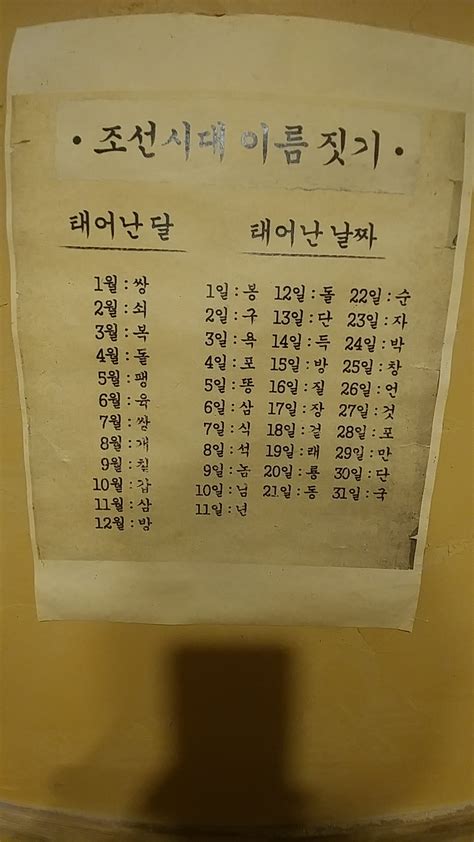 · 조선시대 이름 짓기 ·
태어난 달
1월 : 쌍
2월 : 쇠
3월 : 복
4월 : 돌
5월 : 팽
6월 : 육
7월 : 쌍
8월 : 개
9월 : 칠
10월 : 갑
11월 : 삼
12월 : 방
태어난 날짜
1일 : 봉
2일 : 구
3일 : 욕
4일 : 포
5일 : 똥
6일 : 삼
7일 : 식
8일 : 석
9일 : 놈
10일 : 님
11일 : 년
12일 : 돌
13일 : 단
14일 : 득
15일 : 방
16일 : 질
17일 : 장
18일 : 걸
19일 : 래
20일 : 룡
21일 : 동
22일 : 순
23일 : 자
24일 : 박
25일 : 창
26일 : 언
27일 : 것
28일 : 포
29일 : 만
30일 : 단
31일 : 국